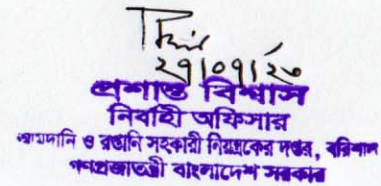 ২৭/০৭/২০
প্রশান্ত বিশ্বাস
নির্বাহী অফিসার
আমদানি ও রপ্তানি সহকারী নিয়ন্ত্রকের দপ্তর, বরিশাল
গণপ্রজাতন্ত্রী বাংলাদেশ সরকার